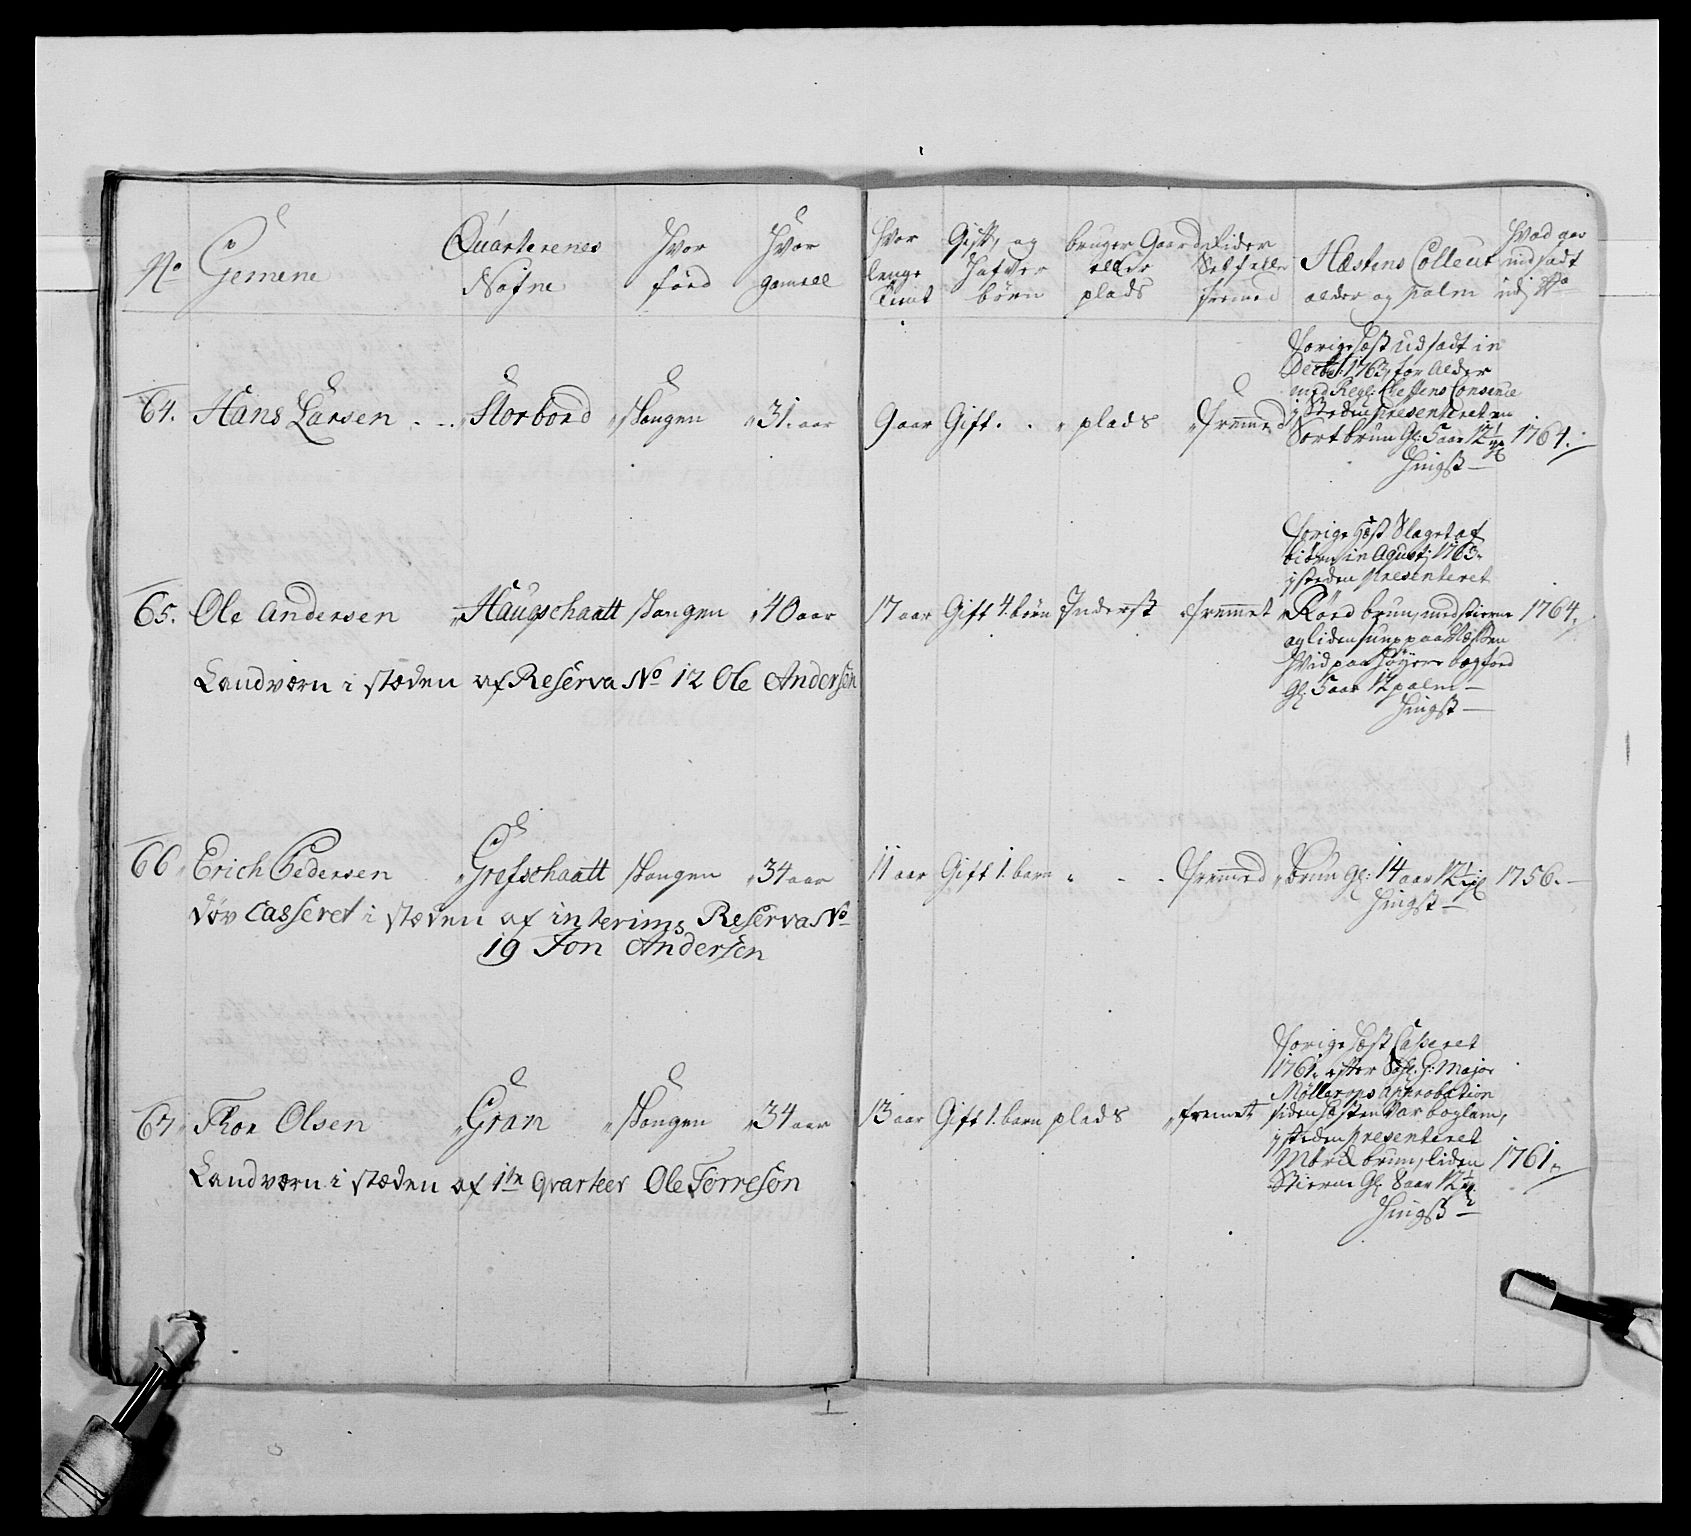 No Gemene Quarterenes Nafne Hvor förd Hvor gamell Hvor lenge tient Gift, og Hafver börn bruger Gaard eller plads Rider Self eller fremed Hæstens Colleur alder og palm Hvad aar indsadt udj No
64. Hans Larsen Storbord Stangen 31. aar 9 aar Gift. plads fremed
forige Hæst Udsadt in
Decbr: 1763, for alder
med Regl: Chefens Consence
i Steden presenteret en
Sort brun Gl: 5 aar 12½ 1764.
Hingst
65. Ole Andersen Haugschaatt Stangen 40 aar 17 aar Gift 4. börn Inderst fremmet
forige Hæst Slaget af
biörn in Agust: 1763.
i steden presenteret
Röd brun, med stierne 1764.
og liden snup paa Næssen
Hvid paa höyere bagfod
Gl: 5 aar 12 palm
Hingst
Landværn i stæden af Reserva No 12 Ole Andersen
66 Erich Pedersen Grefschaatt Stangen 34 aar 11 aar Gift 1. barn fremed brun Gl: 14 aar 12½ 1756.
Hingst
döv Casseret i stæden af interims Reserva No
19 Jon Andersen
67 Thor Olsen Gran Stangen 34 aar 13 aar Gift 1. barn plads fremet
forige Hæst Casseret
1761. efter G: Major
Möllerops approbation
siden Hesten var boglam,
i steden presenteret
Mörck brun, liden 1761.
Stierne Gl: 8 aar 12½
Hingst
Landværn i stæden af 1te qvarteer Ole Torresön